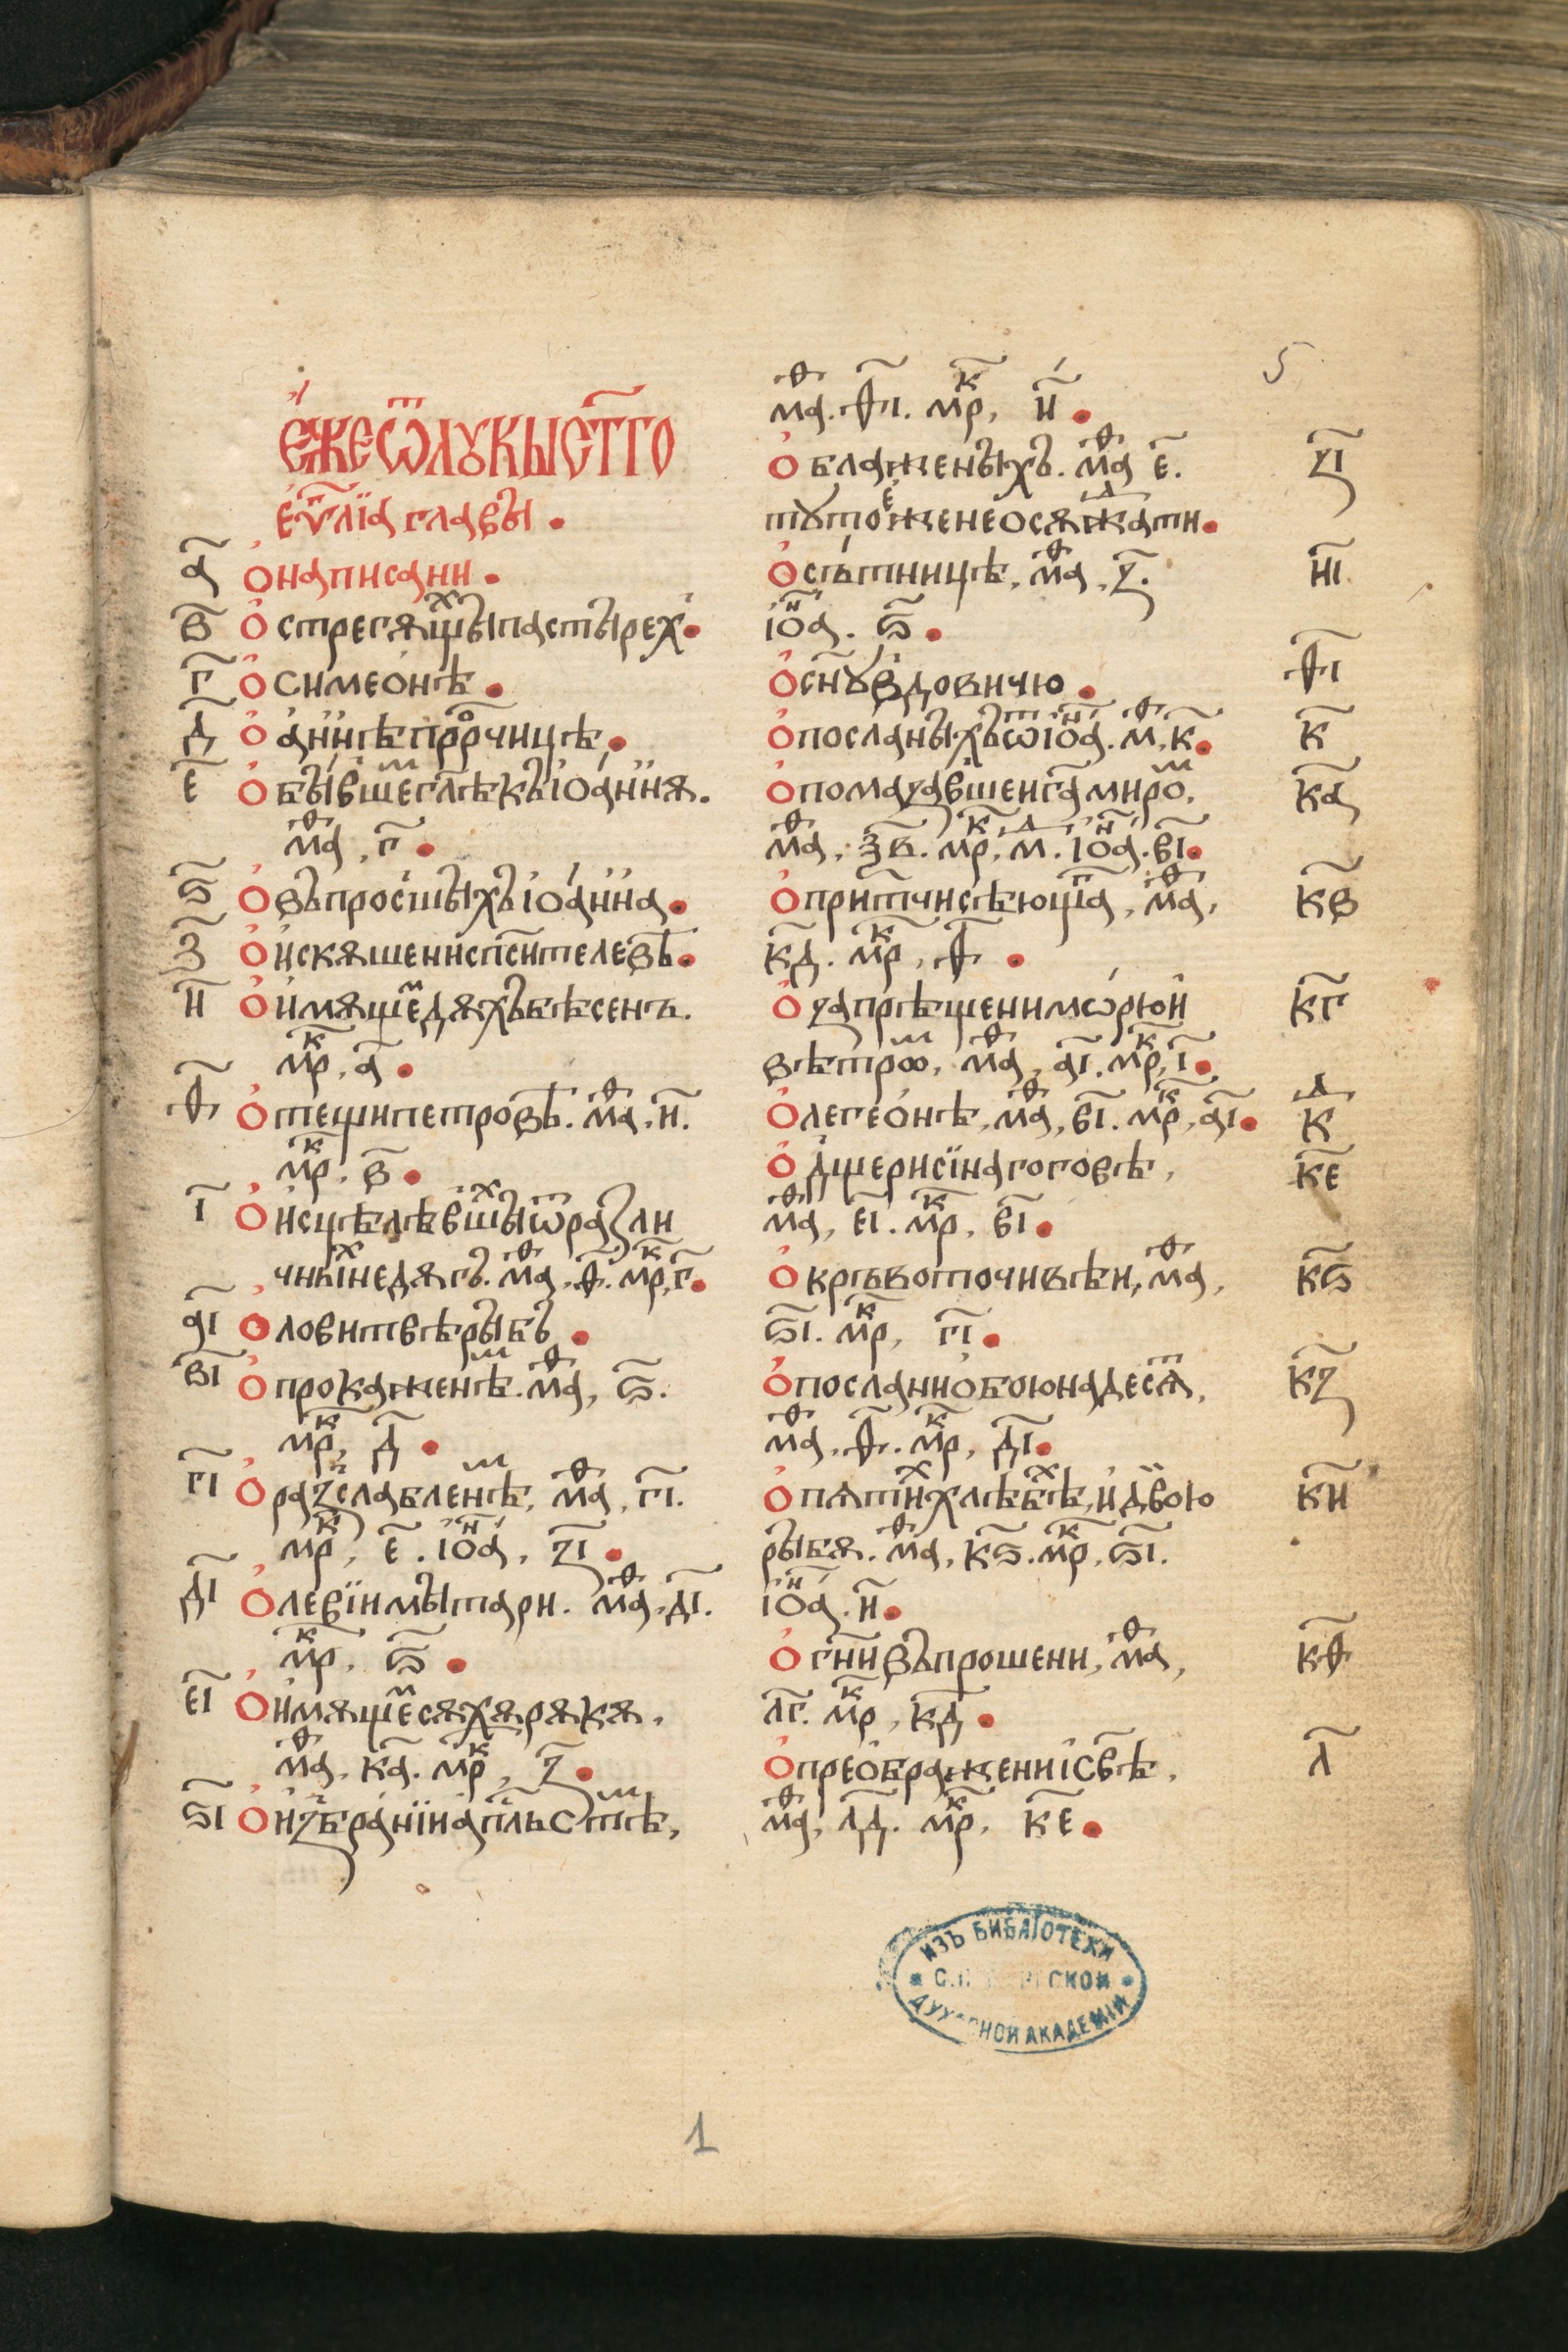 е҆же ѿ лꙋкы ст҃го
еѵ҃лїа главы.
а҃ О написани.
в҃ О стрегѫщыⷯ пастыреⷯ.
г҃ О симеѻнѣ.
д҃ О аннѣ прⷪ҇рчицѣ.
е҃ О бывшеⷨ гл҃ѣ къ іѻаннѫ.
маⷴ, г҃.
ѕ҃ О въпросшыхъ іѻанна.
з҃ О искѫшени сп҃сителевѣ.
и҃ О имѫщеⷨ дѫхъ бѣсенъ.
мрⷦ, а҃.
ѳ҃ О тещи петровѣ. маⷴ, и҃.
мрⷦ, в҃.
і҃ О исцѣлѣвшыⷯ ѿ разли
чныⷯ недѫгъ. маⷴ, ѳ҃. мрⷦ, г҃.
а҃і О ловитвѣ рыбъ.
в҃і О прокаженѣⷨ. маⷴ, ѕ҃.
мрⷦ, д҃.
г҃і О разслабленѣⷨ, маⷴ, г҃і.
мрⷦ, е҃. іѻⷩа, з҃і.
д҃і О левїи мытари. маⷴ, д҃і.
мрⷦ, ѕ҃.
е҃і О имѫщеⷨ сѫхѫ рѫкѫ,
маⷴ, к҃а. мрⷦ, з҃.
ѕ҃і О избранїи ап҃льстѣⷨ,
маⷴ. ѳ҃і. мрⷦ, и҃.
О блаженыхъ. маⷴ е҃. з҃і
тꙋтоⷤ еже не осѫжⷣати.
О сътницѣ, маⷴ, з҃. и҃і
іѻⷩа. ѕ҃.
О сн҃ꙋ вдовичю. ѳ҃і
О посланыхъ ѿ іѻⷩа. мⷴ, к҃. к҃
О помазавшеи г҃а мироⷨ, к҃а
маⷴ, з҃в. мрⷦ, мⷣ. іѻⷩа. в҃і.
О притчи сѣющаⷢ, маⷴ, к҃в
к҃д. мрⷦ, ѳ҃.
О запрѣщени мѡрю и к҃г
вѣтроⷨ, маⷴ, а҃і. мрⷦ, і҃.
О легеѻнѣ, маⷴ, в҃і. мрⷦ, а҃і. кⷣ
О дщери сїнагоговѣ, к҃е
маⷴ, е҃і. мрⷦ, в҃і.
О кръвоточивѣи, маⷴ, к҃ѕ
ѕ҃і. мрⷦ, г҃і.
О послани обоюнадесѧⷮ, к҃з
маⷴ, ѳ҃. мрⷦ, д҃і.
О пѧтиⷯ хлѣбѣⷯ, и двою к҃и
рыбѫ. маⷴ, к҃ѕ. мрⷦ, ѕ҃і.
іѻⷩа. и҃.
О гн҃и въпрошени, маⷴ, к҃ѳ
л҃г. мрⷦ, к҃д.
О преѻбражени іс҃вѣ, л҃
маⷴ, л҃д. мрⷦ, к҃е.
ИЗЪ БИБЛІОТЕКИ
ДУХОВНОЙ АКАДЕМІИ
1